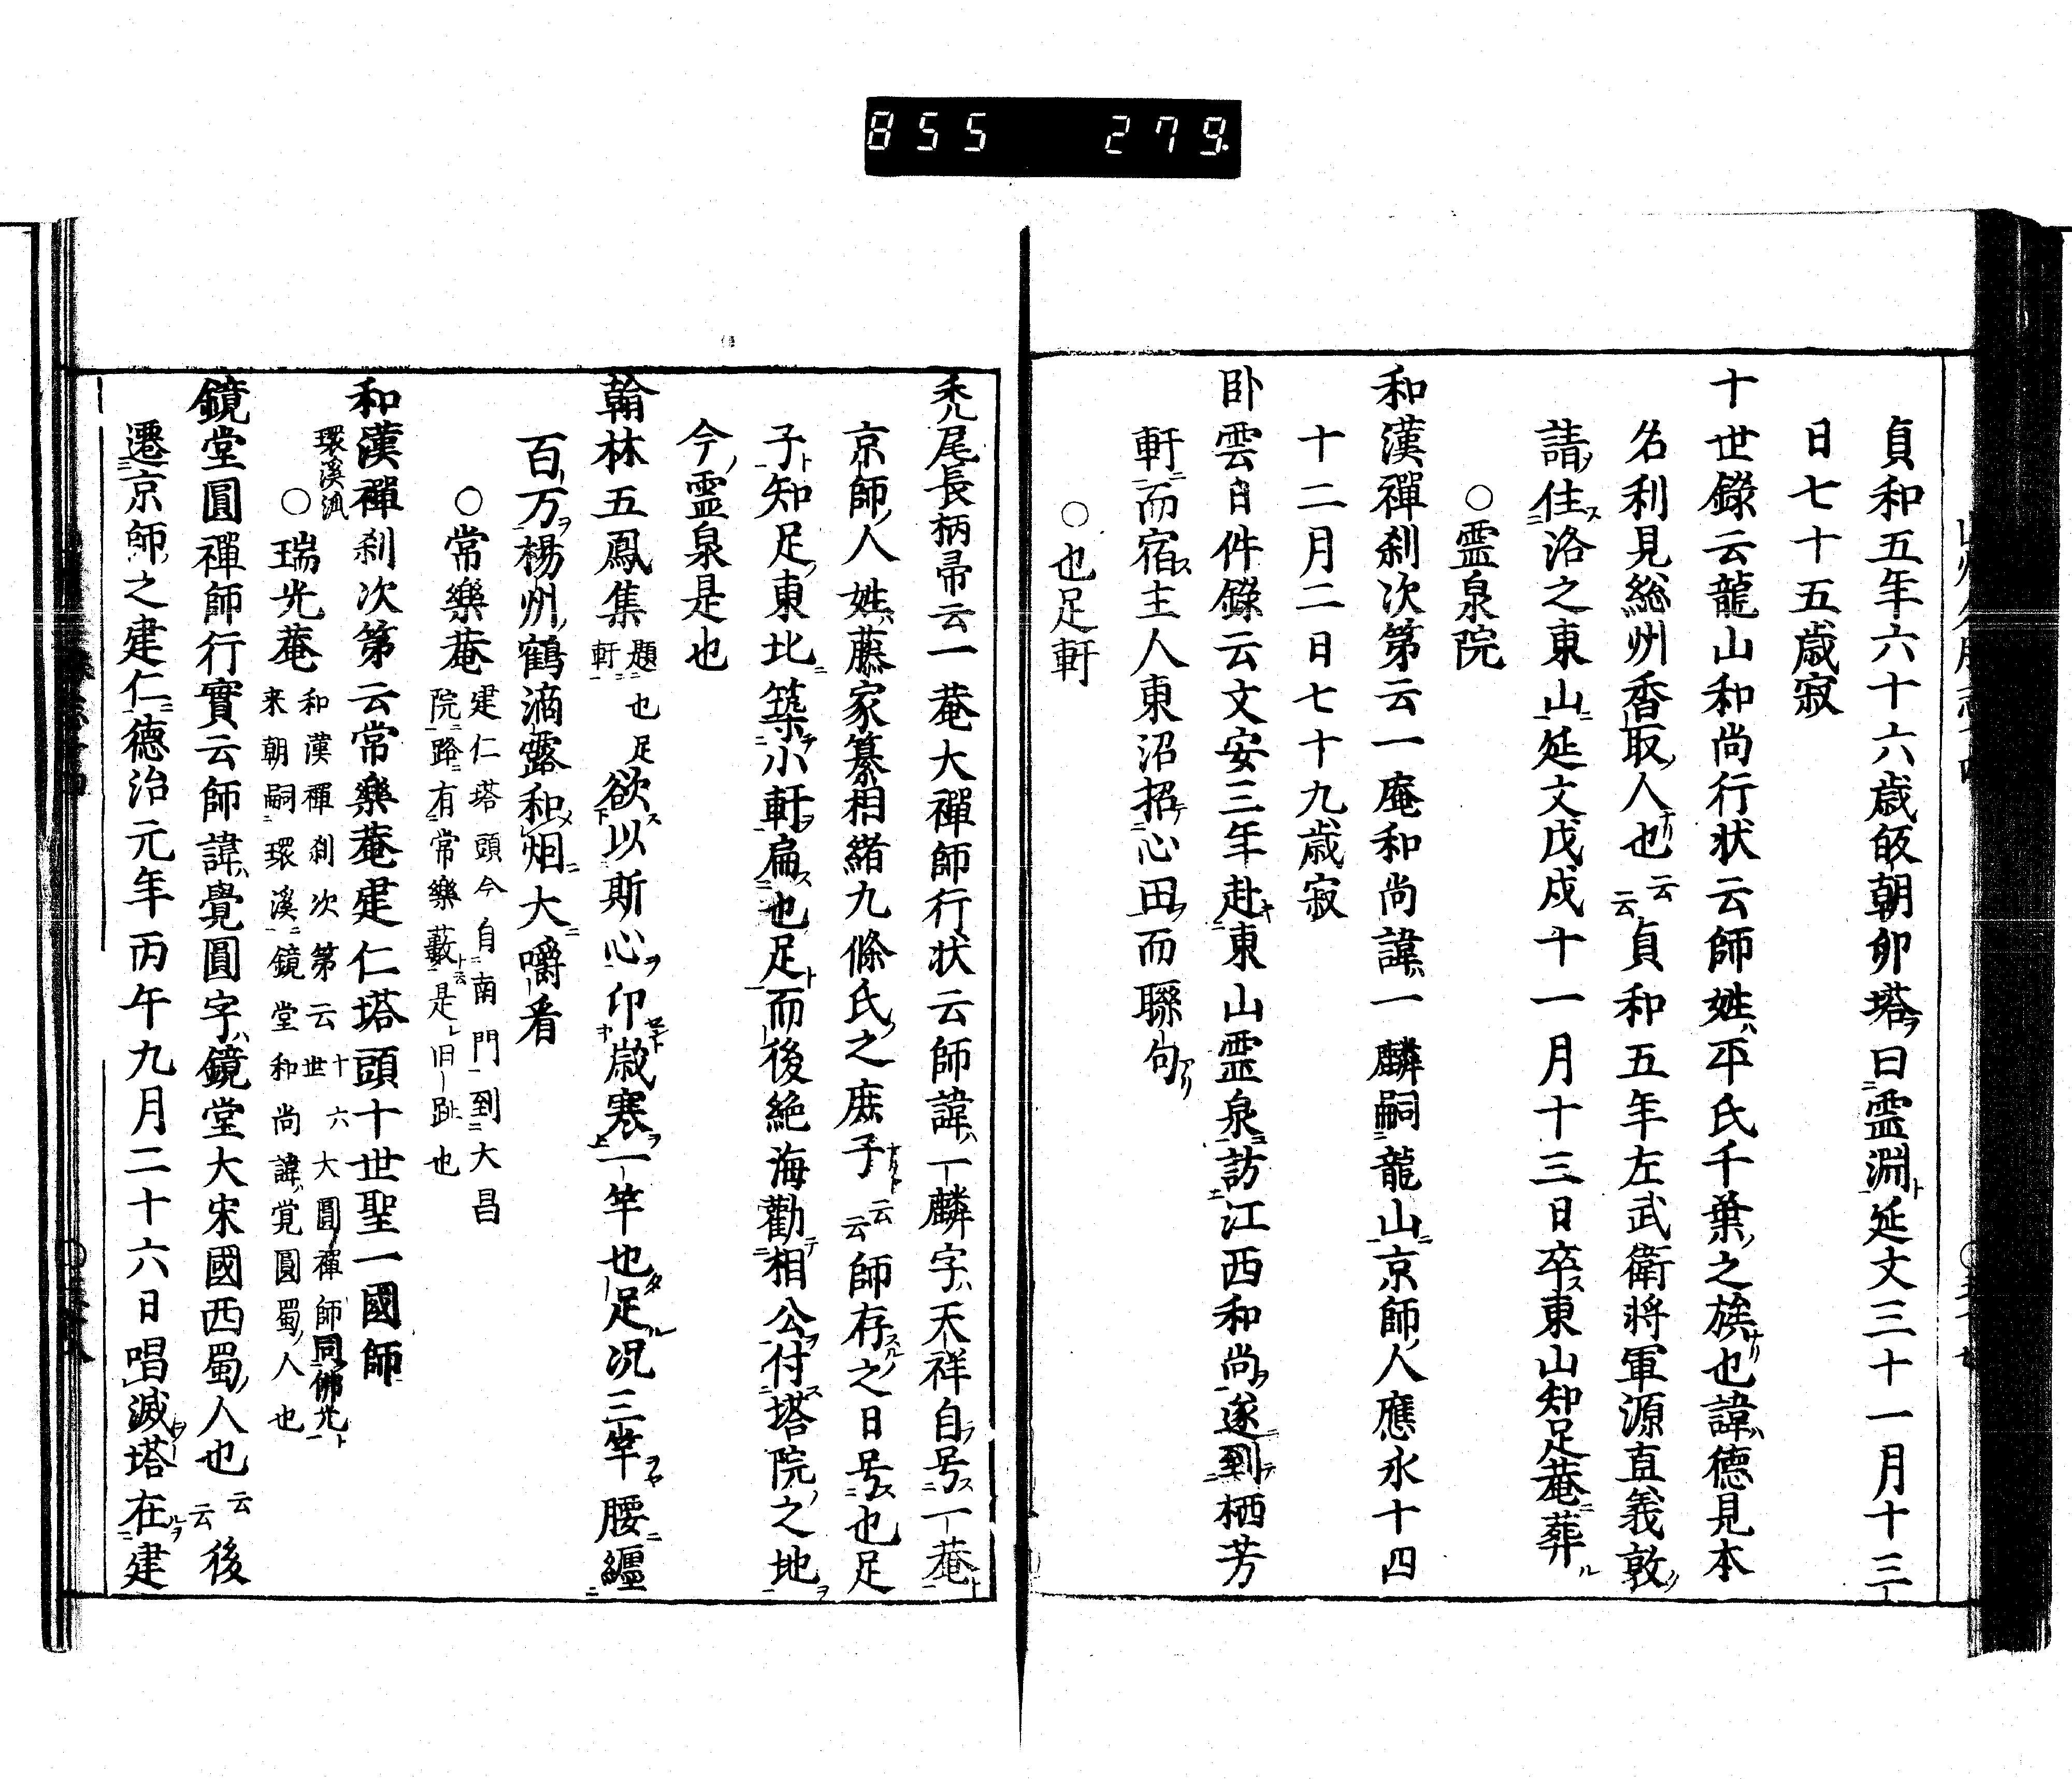 855 279.
貞和五年六十六歳皈朝卯塔ヲ曰霊淵ト延文三十一月十三
日七十五歳寂
十世錄云龍山和尚行状云師姓ハ平氏千葉ノ之族ナリ也諱ハ德見本
名利見総州香取ノ人ナリ也云云貞和五年左武衛将軍源直義敦ク
請ノ住ス洛之東山ニ延文戊戍十一月十三日卒ス東山知足菴ニ葬ル
○霊泉院
和漢禪刹次第云一庵和尚諱ハ一麟嗣龍山ニ京師ノ人應永十四
十二月二日七十九歳寂
卧雲日件錄云文安三年赴キ東山霊泉ニ訪江西和尚ヲ遂到テ栖芳
軒ニ而宿ス主人東沼招テ心田ヲ而聯句アリ
○也足軒
禾八尾長柄帚云一菴大禪師行状云師諱ハ一麟字ハ天祥自ラ号ス一菴ト
京師ノ人姓ハ藤家纂相緒九條氏ノ之庶子ナリト云云師存スルノ之日号ス也足
子ト知足ノ東北ニ築テ小軒ヲ扁ス也足ト而後絶海勸テ相公ヲ付ス塔院ノ之地ヲ
今ノ霊泉是也
翰林五鳳集題也足軒欲ス以斯心ヲ印セント歳寒ヲ一竿也タ足ル况三竿ヲヤ腰ニ纏
百万ヲ楊州ノ鶴滴露和メ烟ニ大ニ嚼看
○常樂菴建仁塔頭今自南門到大昌院路有常樂藪ト云是レ旧趾也
和漢禪刹次第云常樂菴建仁塔頭十世聖一國師
環溪派
○瑞光菴和漢禪刹次第云十六世大圓禪師同佛光ト来朝嗣環溪ニ鏡堂和尚諱ハ覚圓蜀ノ人也
鏡堂圓禪師行實云師諱ハ覺圓字ハ鏡堂大宋國西蜀ノ人也云云後
遷京師ノ之建仁ニ德治元年丙午九月二十六日唱滅塔在ルヲ建